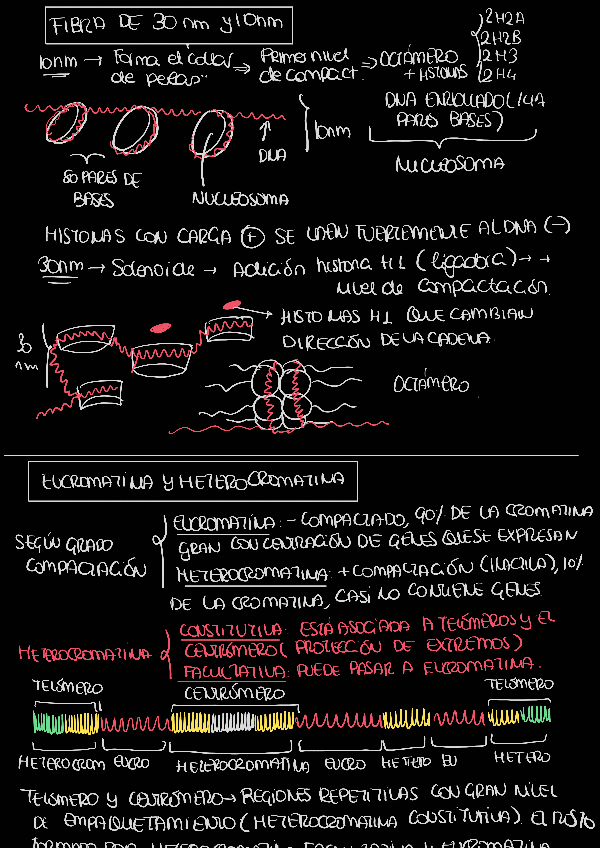 FIBRA DE 30 nm y 10nm
10nm → Forma el collar de perlas" ⇒ Primer nivel de compact. ⇒ OCTÁMERO + HISTONAS
2H2A
2H2B
2H3
2H4
DNA ENROLLADO (144 PARES BASES)
NUCLEOSOMA
10nm
DNA
80 PARES DE BASES
NUCLEOSOMA
HISTONAS CON CARGA (+) SE UNEN FUERTEMENTE AL DNA (-)
30nm → Solenoide → Adición histona H1 (ligadora) → +
nivel de compactación
30 nm
→ HISTONAS H1 QUE CAMBIAN
DIRECCIÓN DE LA CADENA
OCTÁMERO
EUCROMATINA Y HETEROCROMATINA
SEGÚN GRADO
COMPACTACIÓN
EUCROMATINA: - COMPACTADO, 90% DE LA CROMATINA
GRAN CONCENTRACIÓN DE GENES QUE SE EXPRESAN
HETEROCROMATINA: + COMPACTACIÓN (INACTIVA), 10%
DE LA CROMATINA, CASI NO CONTIENE GENES
HETEROCROMATINA
CONSTITUTIVA: ESTÁ ASOCIADA A TELÓMEROS Y EL
CENTRÓMERO (PROTECCIÓN DE EXTREMOS)
FACULTATIVA: PUEDE PASAR A EUCROMATINA.
TELÓMERO CENTRÓMERO TELÓMERO
HETEROCROM EUCRO HETEROCROMATINA EUCRO HETERO EU HETERO
TELÓMERO Y CENTRÓMERO → REGIONES REPETITIVAS CON GRAN NIVEL
DE EMPAQUETAMIENTO (HETEROCROMATINA CONSTITUTIVA). EL RESTO
FORMADO POR HETEROCROMATINA FACULTATIVA Y EUCROMATINA